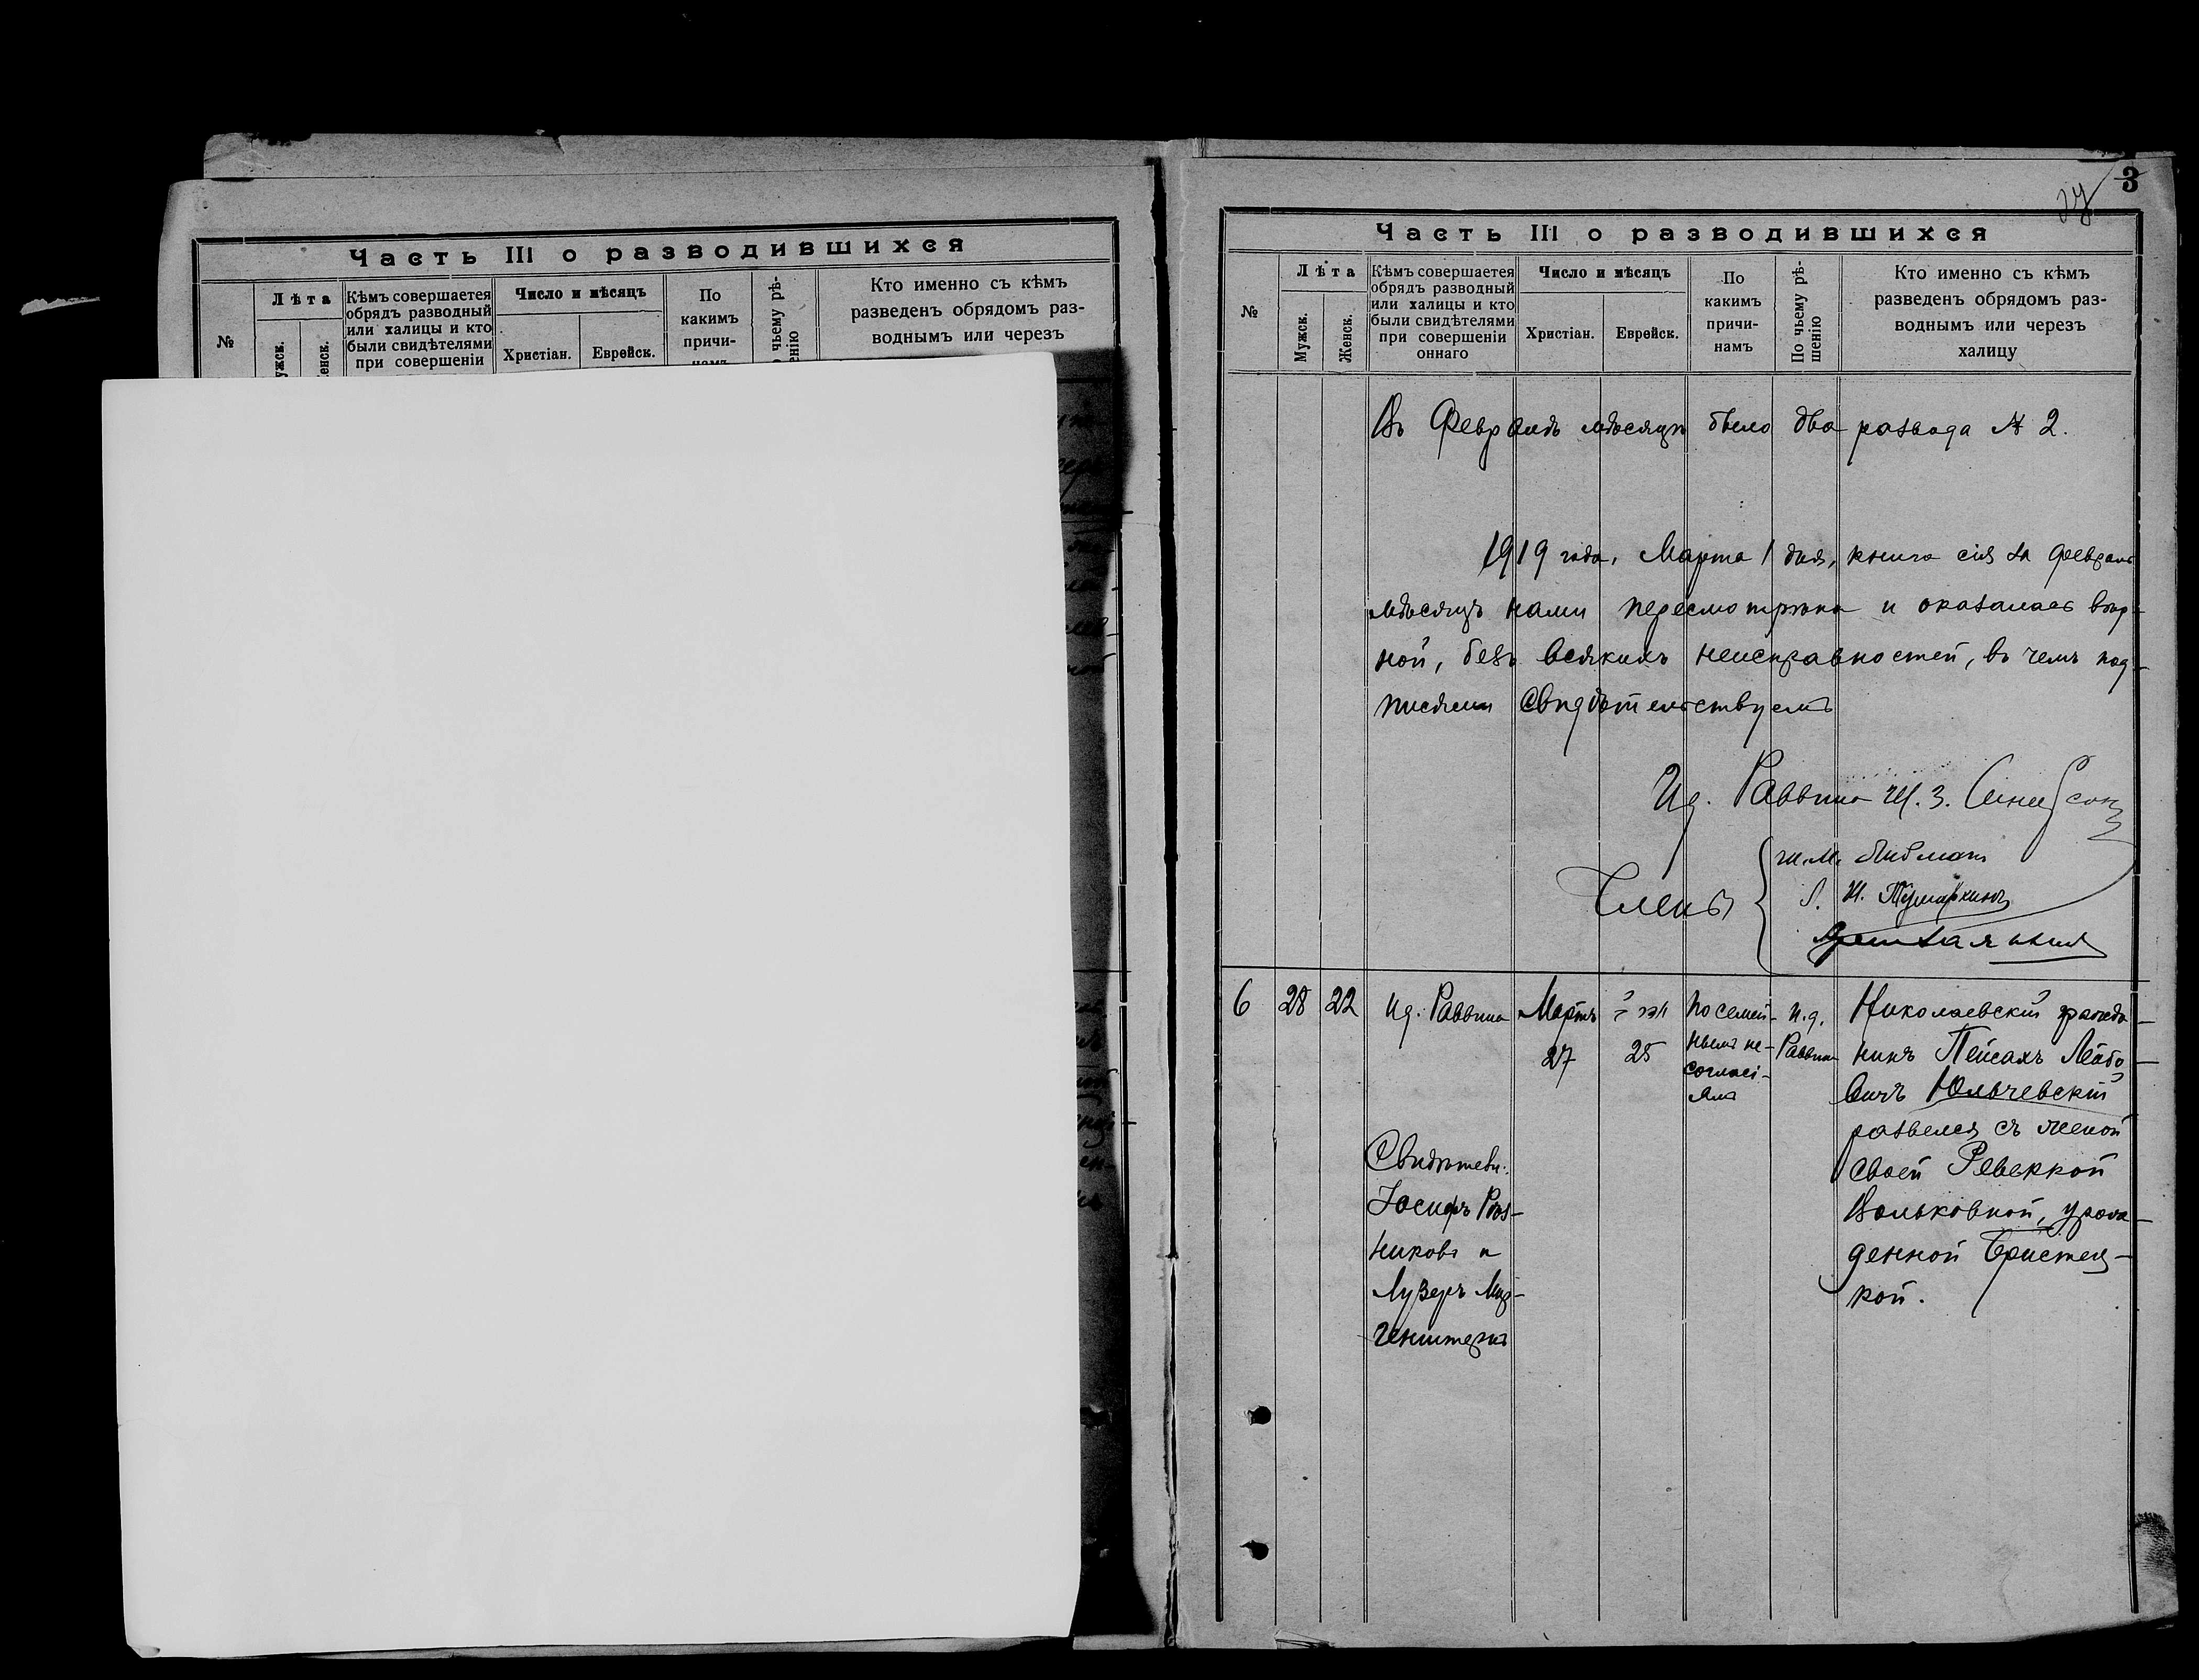 Часть III о разводившихся
№
Лѣта
Мужск.
Женск.
Кѣмъ совершается
обрядъ разводный
или халицы и кто
были свидѣтелями
при совершеніи
Число и мѣсяцъ
Христіан.
Еврейск.
По
какимъ
причи-
намъ
По чьему рѣ-
шенію
Кто именно съ кѣмъ
разведенъ обрядомъ раз-
воднымъ или черезъ
3
Часть III о разводившихся
№
Лѣта
Мужск.
Женск.
Кѣмъ совершается
обрядъ разводный
или халицы и кто
были свидѣтелями
при совершеніи
оннаго
Число и мѣсяцъ
Христіан.
Еврейск.
По
какимъ
причи-
намъ
По чьему рѣ-
шенію
Кто именно съ кѣмъ
разведенъ обрядомъ раз-
воднымъ или черезъ
халицу
Въ Февралѣ мѣсяцѣ было два развода № 2.
1919 года, Марта 1 дня, книга сія за Февраль
мѣсяцъ нами пересмотрѣна и оказалась вѣр-
ной, безъ всякихъ неисправностей, въ чемъ под-
писями свидѣтельствуемъ
И.д. Раввина
Члены
6
28
22
И.д. Раввина
Свидѣтели:
Іосифъ Рѣз-
никовъ и
Лузеръ
Мартъ
27
25
По семей-
нымъ не-
согласі-
ямъ
И.д.
Раввина
Николаевскій гражда-
нинъ Пейсахъ Лейбо-
вичъ Юльчевскій
развелся съ женой
своей Ревеккой
Вольковной, урож-
денной Бристец-
кой.